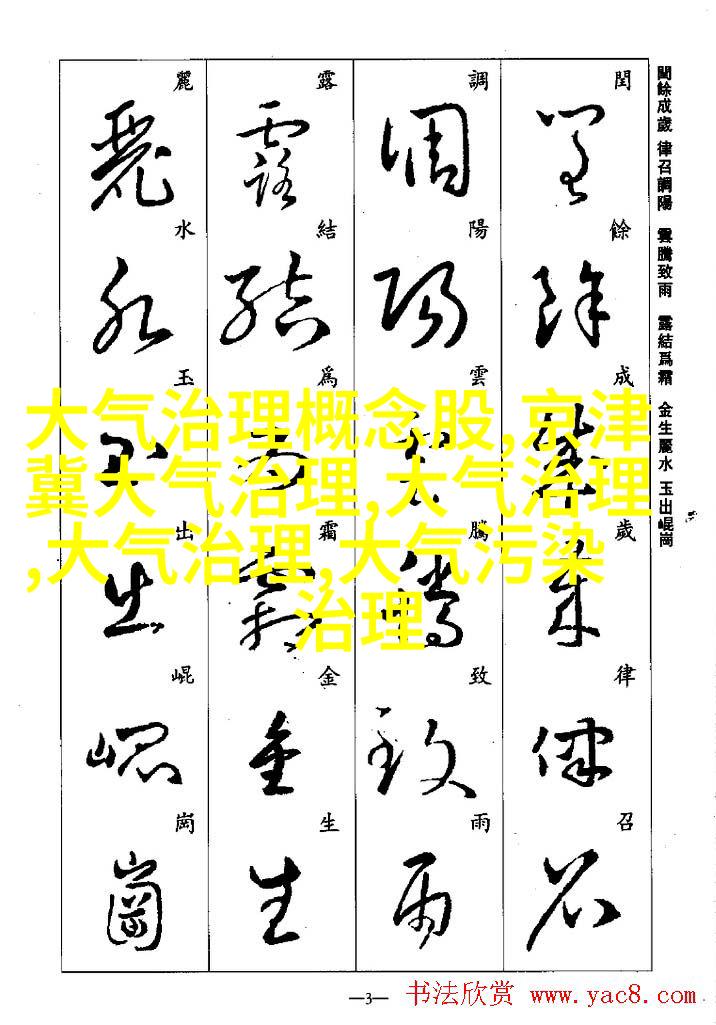 閏餘成歲 律召調陽 雲騰致雨 露結爲霜 金生麗水 玉出崐崗
閏 餘 成 歲 律 召
調 陽 雲 騰 致 雨
露 結 爲 霜 金 生
麗 水 玉 出 崐 崗
大气治理概念股,京津
冀大气治理,大气治理
,大气治理,大气污染
治理
—3—
书法欣赏 www.yac8.com